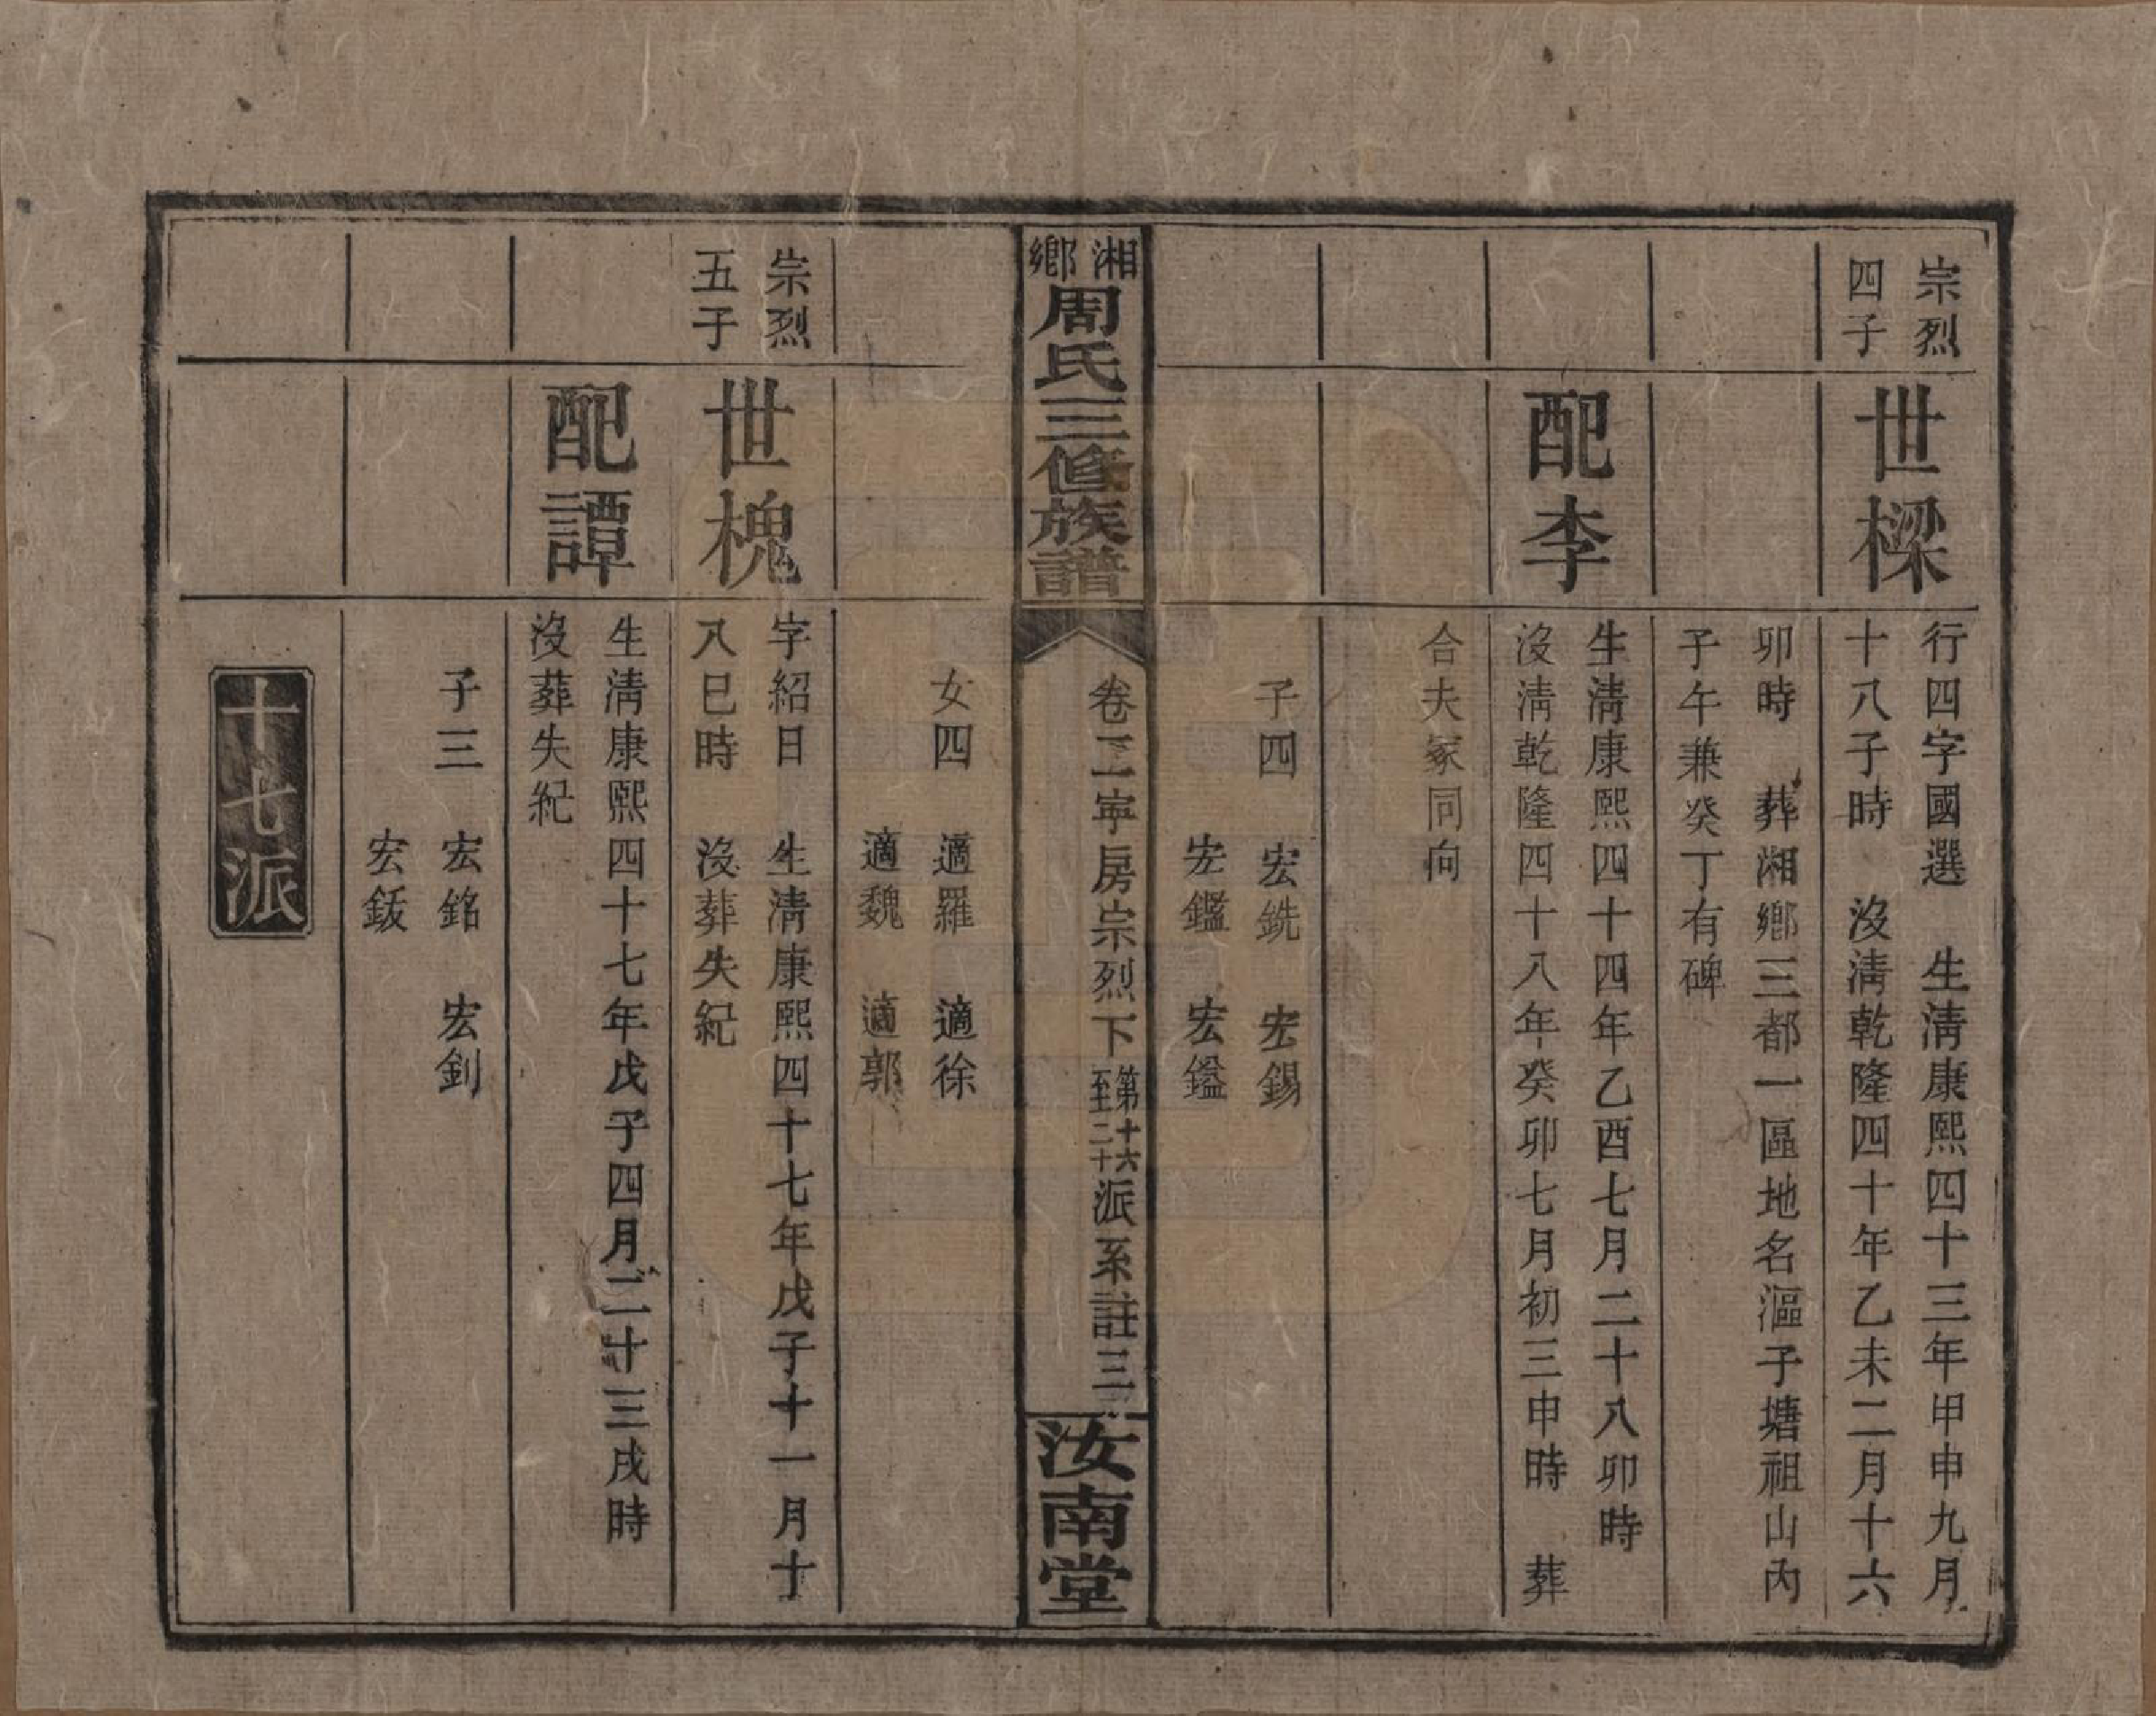 宗烈
四子
世樑
行四字國選　生淸康熙四十三年甲申九月
十八子時　沒淸乾隆四十年乙未二月十六
卯時　葬湘鄉三都一區地名漚子塘祖山內
子午兼癸丁有碑
配李
生淸康熙四十四年乙酉七月二十八卯時
沒淸乾隆四十八年癸卯七月初三申時　葬
合夫冢同向
子四　宏銑　宏錫
宏鑑　宏鎰
湘鄉
周氏三修族譜
卷二寧房宗烈下第十六至二十派系註三
汝南堂
女四　適羅　適徐
適魏　適郭
宗烈
五子
世槐
字紹日　生淸康熙四十七年戊子十一月十
八巳時　沒葬失紀
配譚
生淸康熙四十七年戊子四月二十三戌時
沒葬失紀
子三　宏銘　宏釗
宏鈸
十七派